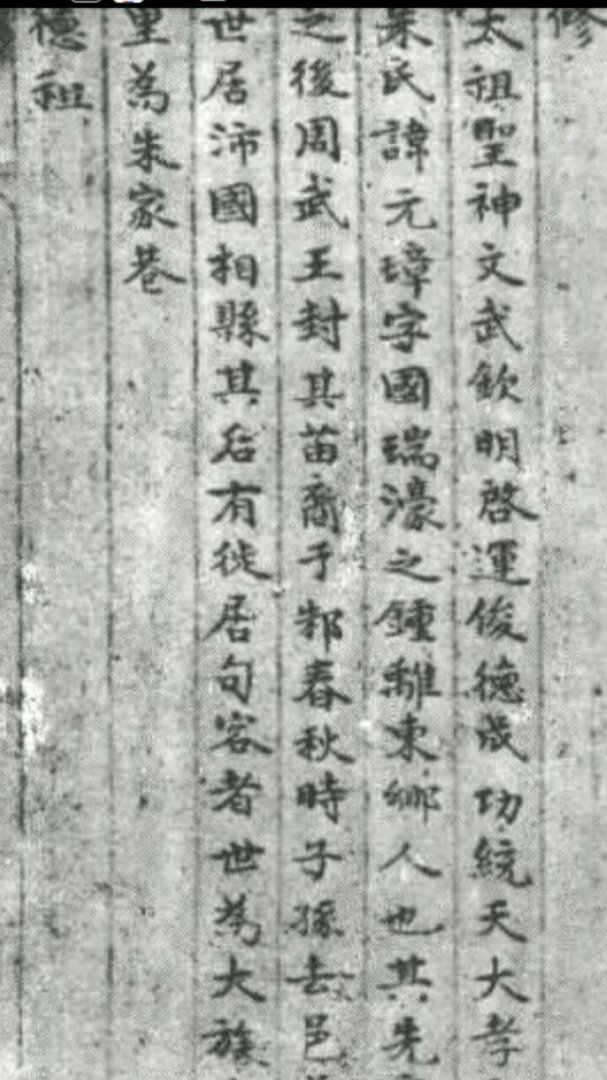 修
太祖聖神文武欽明啓運俊德成功統天大孝
朱氏諱元璋字國瑞濠之鍾離東鄉人也其先
之後周武王封其苗裔于邾春秋時子孫去邑
世居沛國相縣其后有徙居句容者世為大族
里為朱家巷
德祖